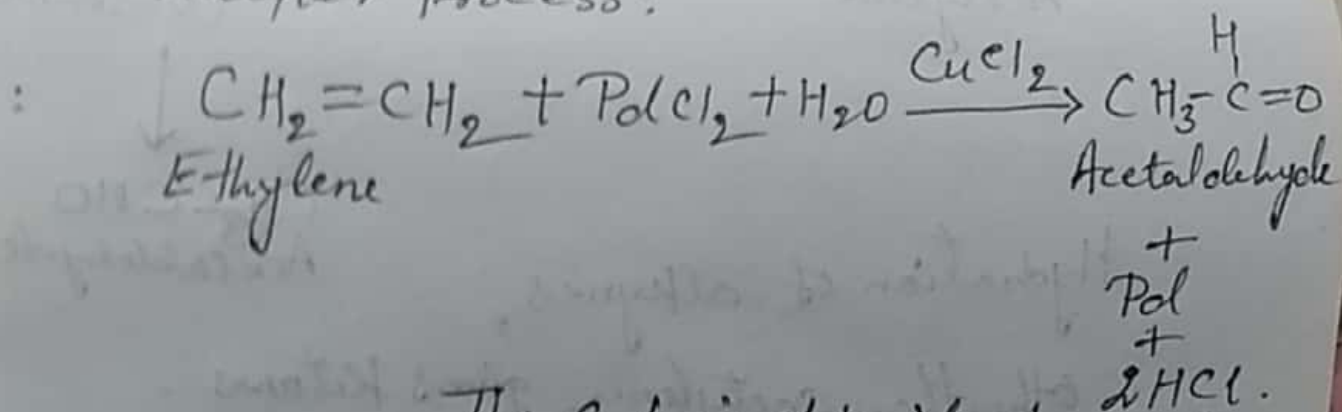 process.
: CH₂=CH₂ + PdCl₂ + H₂O —CuCl₂→ CH₃-C=O
H
Ethylene Acetaldehyde
+
Pd
+
2HCl.